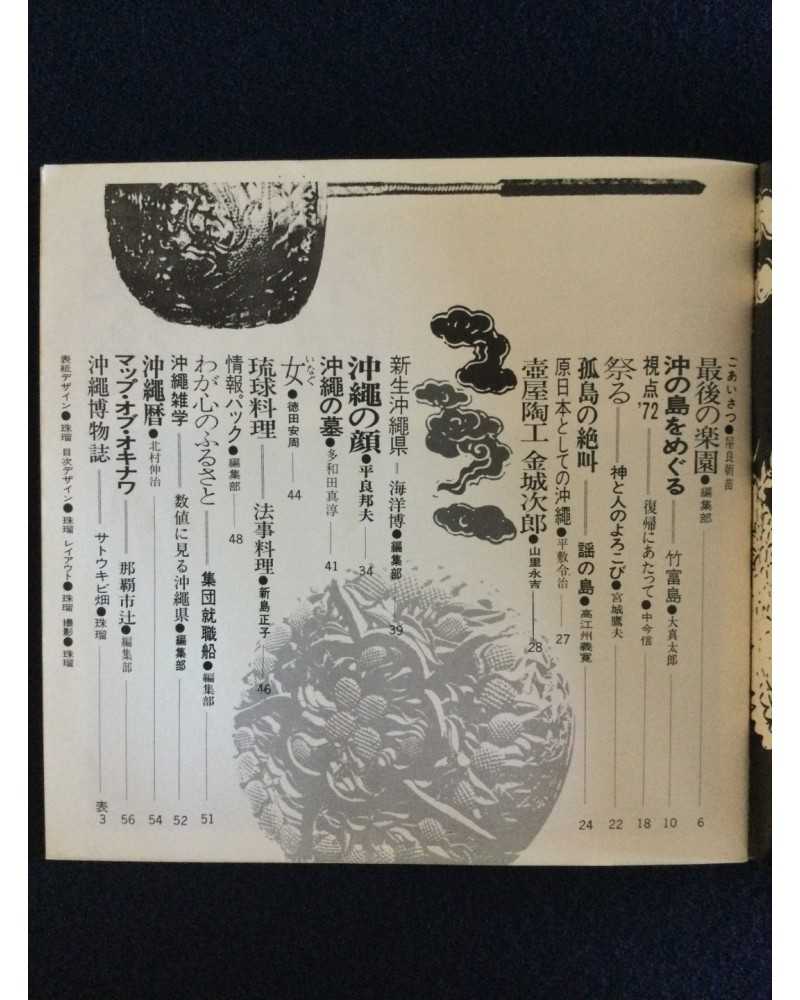 ごあいさつ●屋良朝苗
最後の楽園●編集部 6
沖の島をめぐる 竹富島●大真太郎 10
視点'72 復帰にあたって●中今信 18
祭る 神と人のよろこび●宮城鷹夫 22
孤島の絶叫 謡の島●高江州義寛 24
原日本としての沖縄●平敷令治 27
壺屋陶工 金城次郎●山里永吉 28
新生沖縄県=海洋博●編集部 39
沖縄の顔●平良邦夫 34
沖縄の墓●多和田真淳 41
女いなぐ●徳田安周 44
琉球料理 法事料理●新島正子 46
情報パック●編集部 48
わが心のふるさと 集団就職船●編集部 51
沖縄雑学 数値に見る沖縄県●編集部 52
沖縄暦●北村伸治 54
マップ・オブ・オキナワ 那覇市辻●編集部 56
沖縄博物誌 サトウキビ畑●珠瑠 表3
表紙デザイン●珠瑠 目次デザイン●珠瑠 レイアウト●珠瑠 撮影●珠瑠